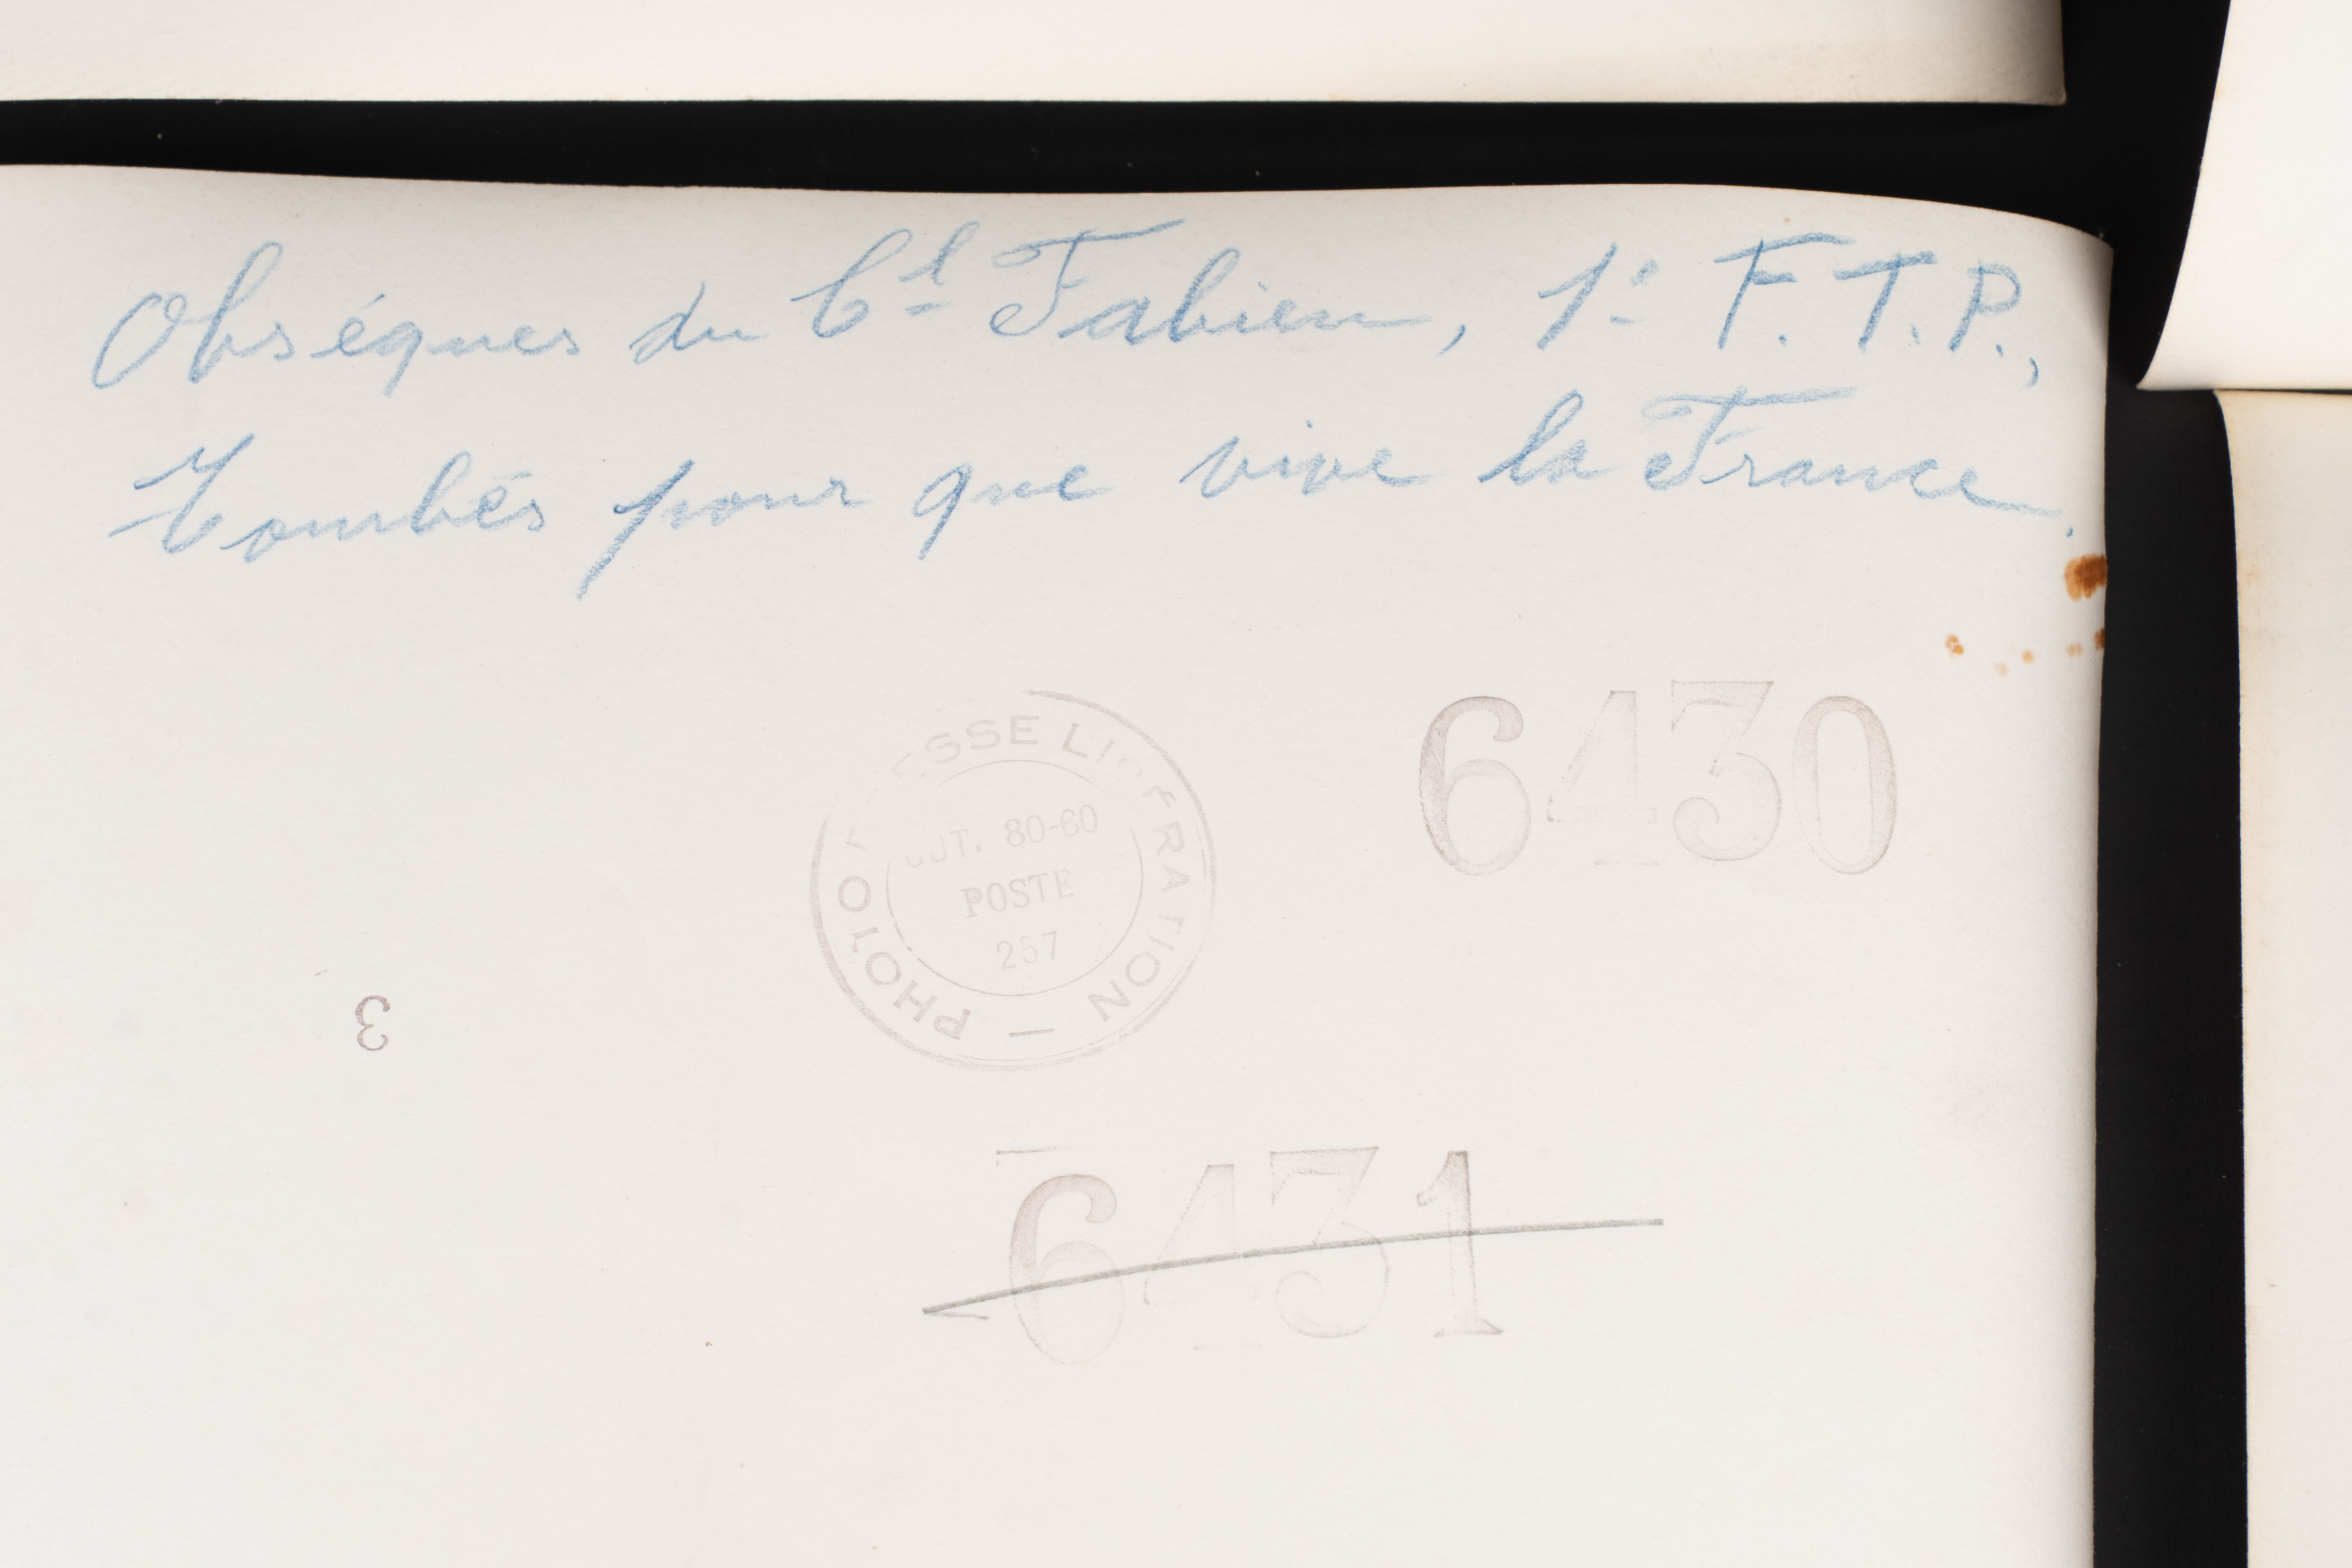 Obséques du Cl Fabien, 1e F.T.P.,
Tombés pour que vive la France.
6430
PHOTO LIBERATION —
80-60
POSTE
257
3
6431